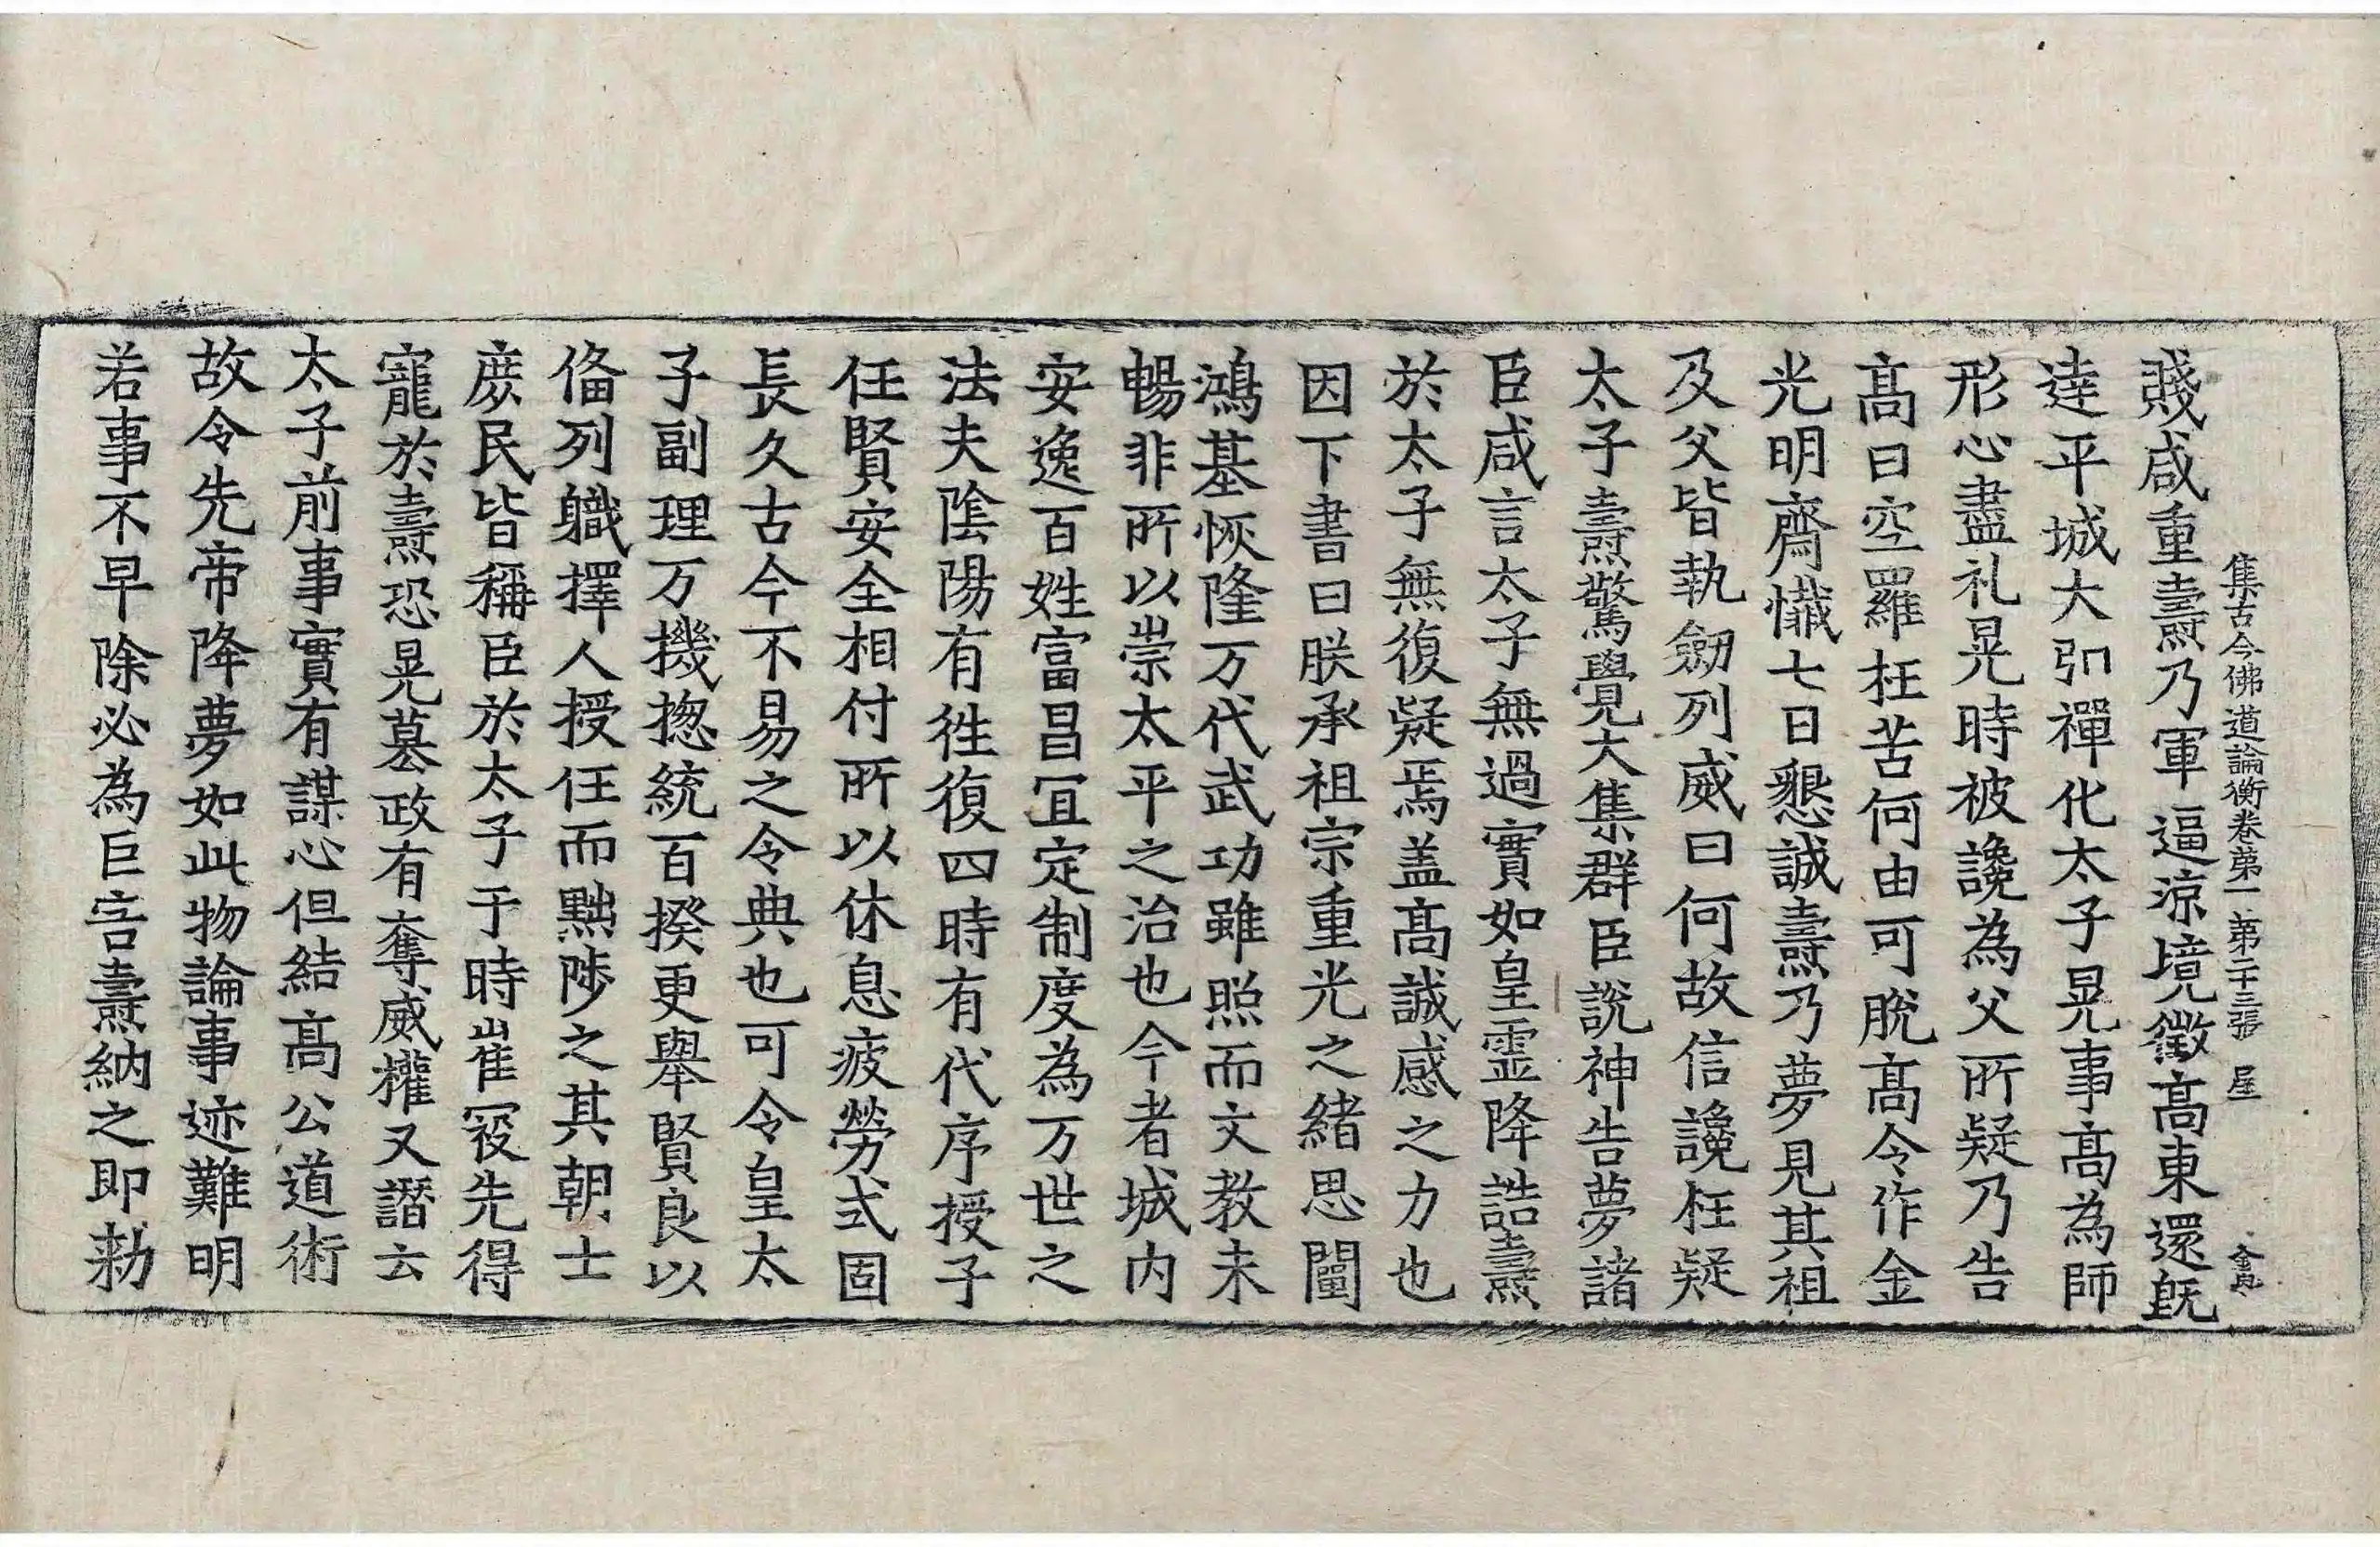 集古今佛道論衡卷第一 第二十三張 屋
賤咸重燾乃軍逼涼境徵髙東還旣
達平城大弘禪化太子晃事髙為師
形心盡礼晃時被讒為父所疑乃告
髙曰空羅枉苦何由可脫髙令作金
光明齋懺七日懇誠燾乃夢見其祖
及父皆執劒列威曰何故信讒枉疑
太子燾驚覺大集群臣說神告夢諸
臣咸言太子無過實如皇霊降誥燾
於太子無復疑焉盖髙誠感之力也
因下書曰朕承祖宗重光之緒思闡
鴻基恢隆万代武功雖照而文教未
暢非所以崇太平之治也今者城内
安逸百姓富昌冝定制度為万世之
法夫陰陽有徃復四時有代序授子
任賢安全相付所以休息疲勞式固
長久古今不易之令典也可令皇太
子副理万機揔統百揆更舉賢良以
俻列軄擇人授任而黜陟之其朝士
庶民皆稱臣於太子于時崔㓂先得
寵於燾恐晃墓政有奪威權又譖云
太子前事實有謀心但結髙公道術
故令先帝降夢如此物論事迹難明
若事不早除必為巨害燾納之即勑